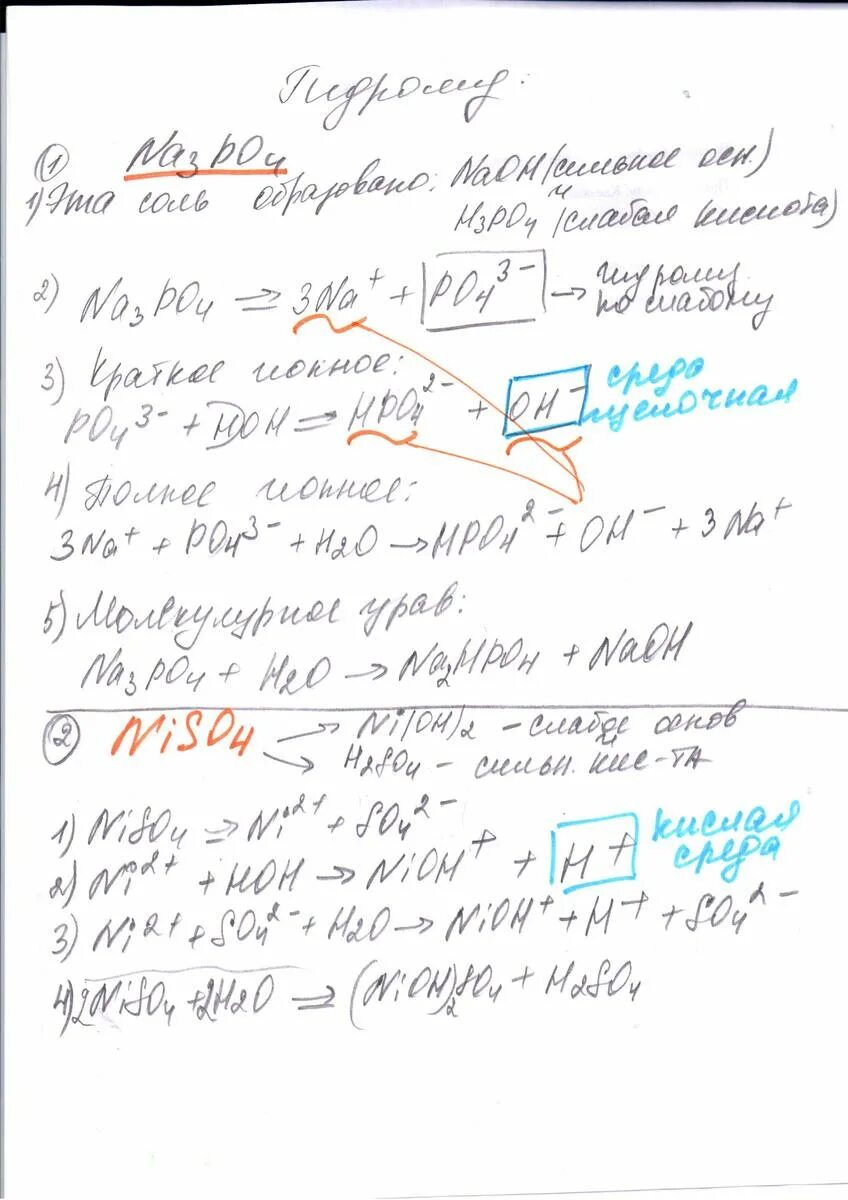 Гидролиз:
① Na₃PO₄
1) Эта соль образовано: NaOH (сильное осн.)
и
H₃PO₄ (слабая кислота)
2) Na₃PO₄ ⇌ 3Na⁺ + PO₄³⁻ → гидролиз
по слабому
3) Краткое ионное:
PO₄³⁻ + HOH ⇌ HPO₄²⁻ + OH⁻ среда
щелочная
4) Полное ионное:
3Na⁺ + PO₄³⁻ + H₂O → HPO₄²⁻ + OH⁻ + 3Na⁺
5) Молекулурное урав:
Na₃PO₄ + H₂O → Na₂HPO₄ + NaOH
② NiSO₄ → Ni(OH)₂ – слабое основ
→ H₂SO₄ – сильн. кис-та
1) NiSO₄ ⇌ Ni²⁺ + SO₄²⁻
2) Ni²⁺ + HOH → NiOH⁺ + H⁺ кислая
среда
3) Ni²⁺ + SO₄²⁻ + H₂O → NiOH⁺ + H⁺ + SO₄²⁻
4) 2NiSO₄ + 2H₂O ⇌ (NiOH)₂SO₄ + H₂SO₄